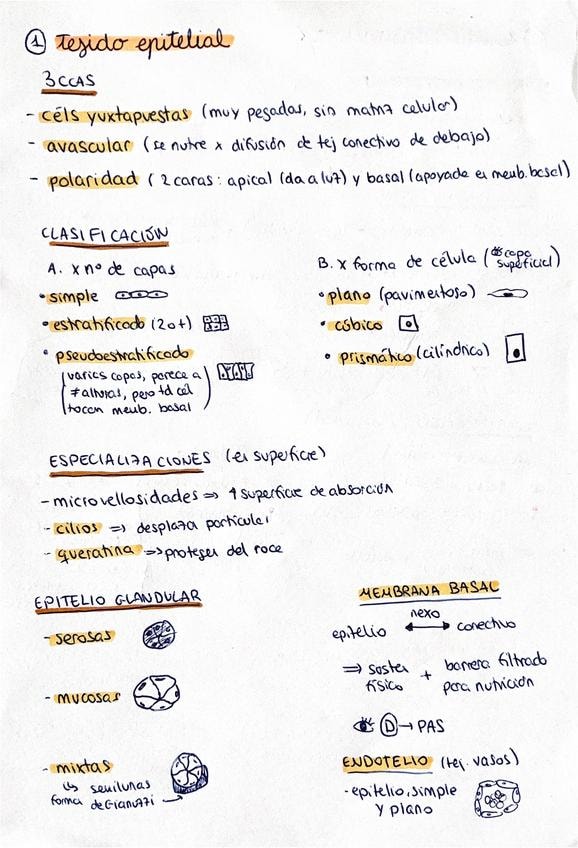 ① Tejido epitelial
3 CCAS
- céls yuxtapuestas (muy pegadas, sin matriz celular)
- avascular (se nutre x difusión de tej conectivo de debajo)
- polaridad (2 caras: apical (da a luz) y basal (apoyada en memb. basal)
CLASIFICACIÓN
A. x nº de capas
• simple
• estratificado (2 o +)
• pseudoestratificado
(varias capas, parece a
≠ alturas, pero td cél
tocan memb. basal)
B. x forma de célula (capa
superficial)
• plano (pavimentoso)
• cúbico
• prismático (cilíndrico)
ESPECIALIZACIONES (en superficie)
- microvellosidades ⇒ ↑ superficie de absorción
- cilios ⇒ desplaza partículas
- queratina ⇒ proteger del roce
EPITELIO GLANDULAR
- serosas
- mucosas
- mixtas
↳ semilunas
forma de Gianuzzi →
MEMBRANA BASAL
nexo
epitelio ↔ conectivo
⇒ sostén + barrera filtrado
físico para nutrición
Ⓓ → PAS
ENDOTELIO (tej. vasos)
- epitelio simple
y plano